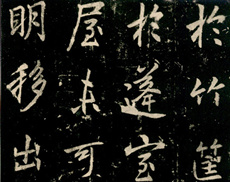 於竹筐
於蓬室
屋未可
明移出